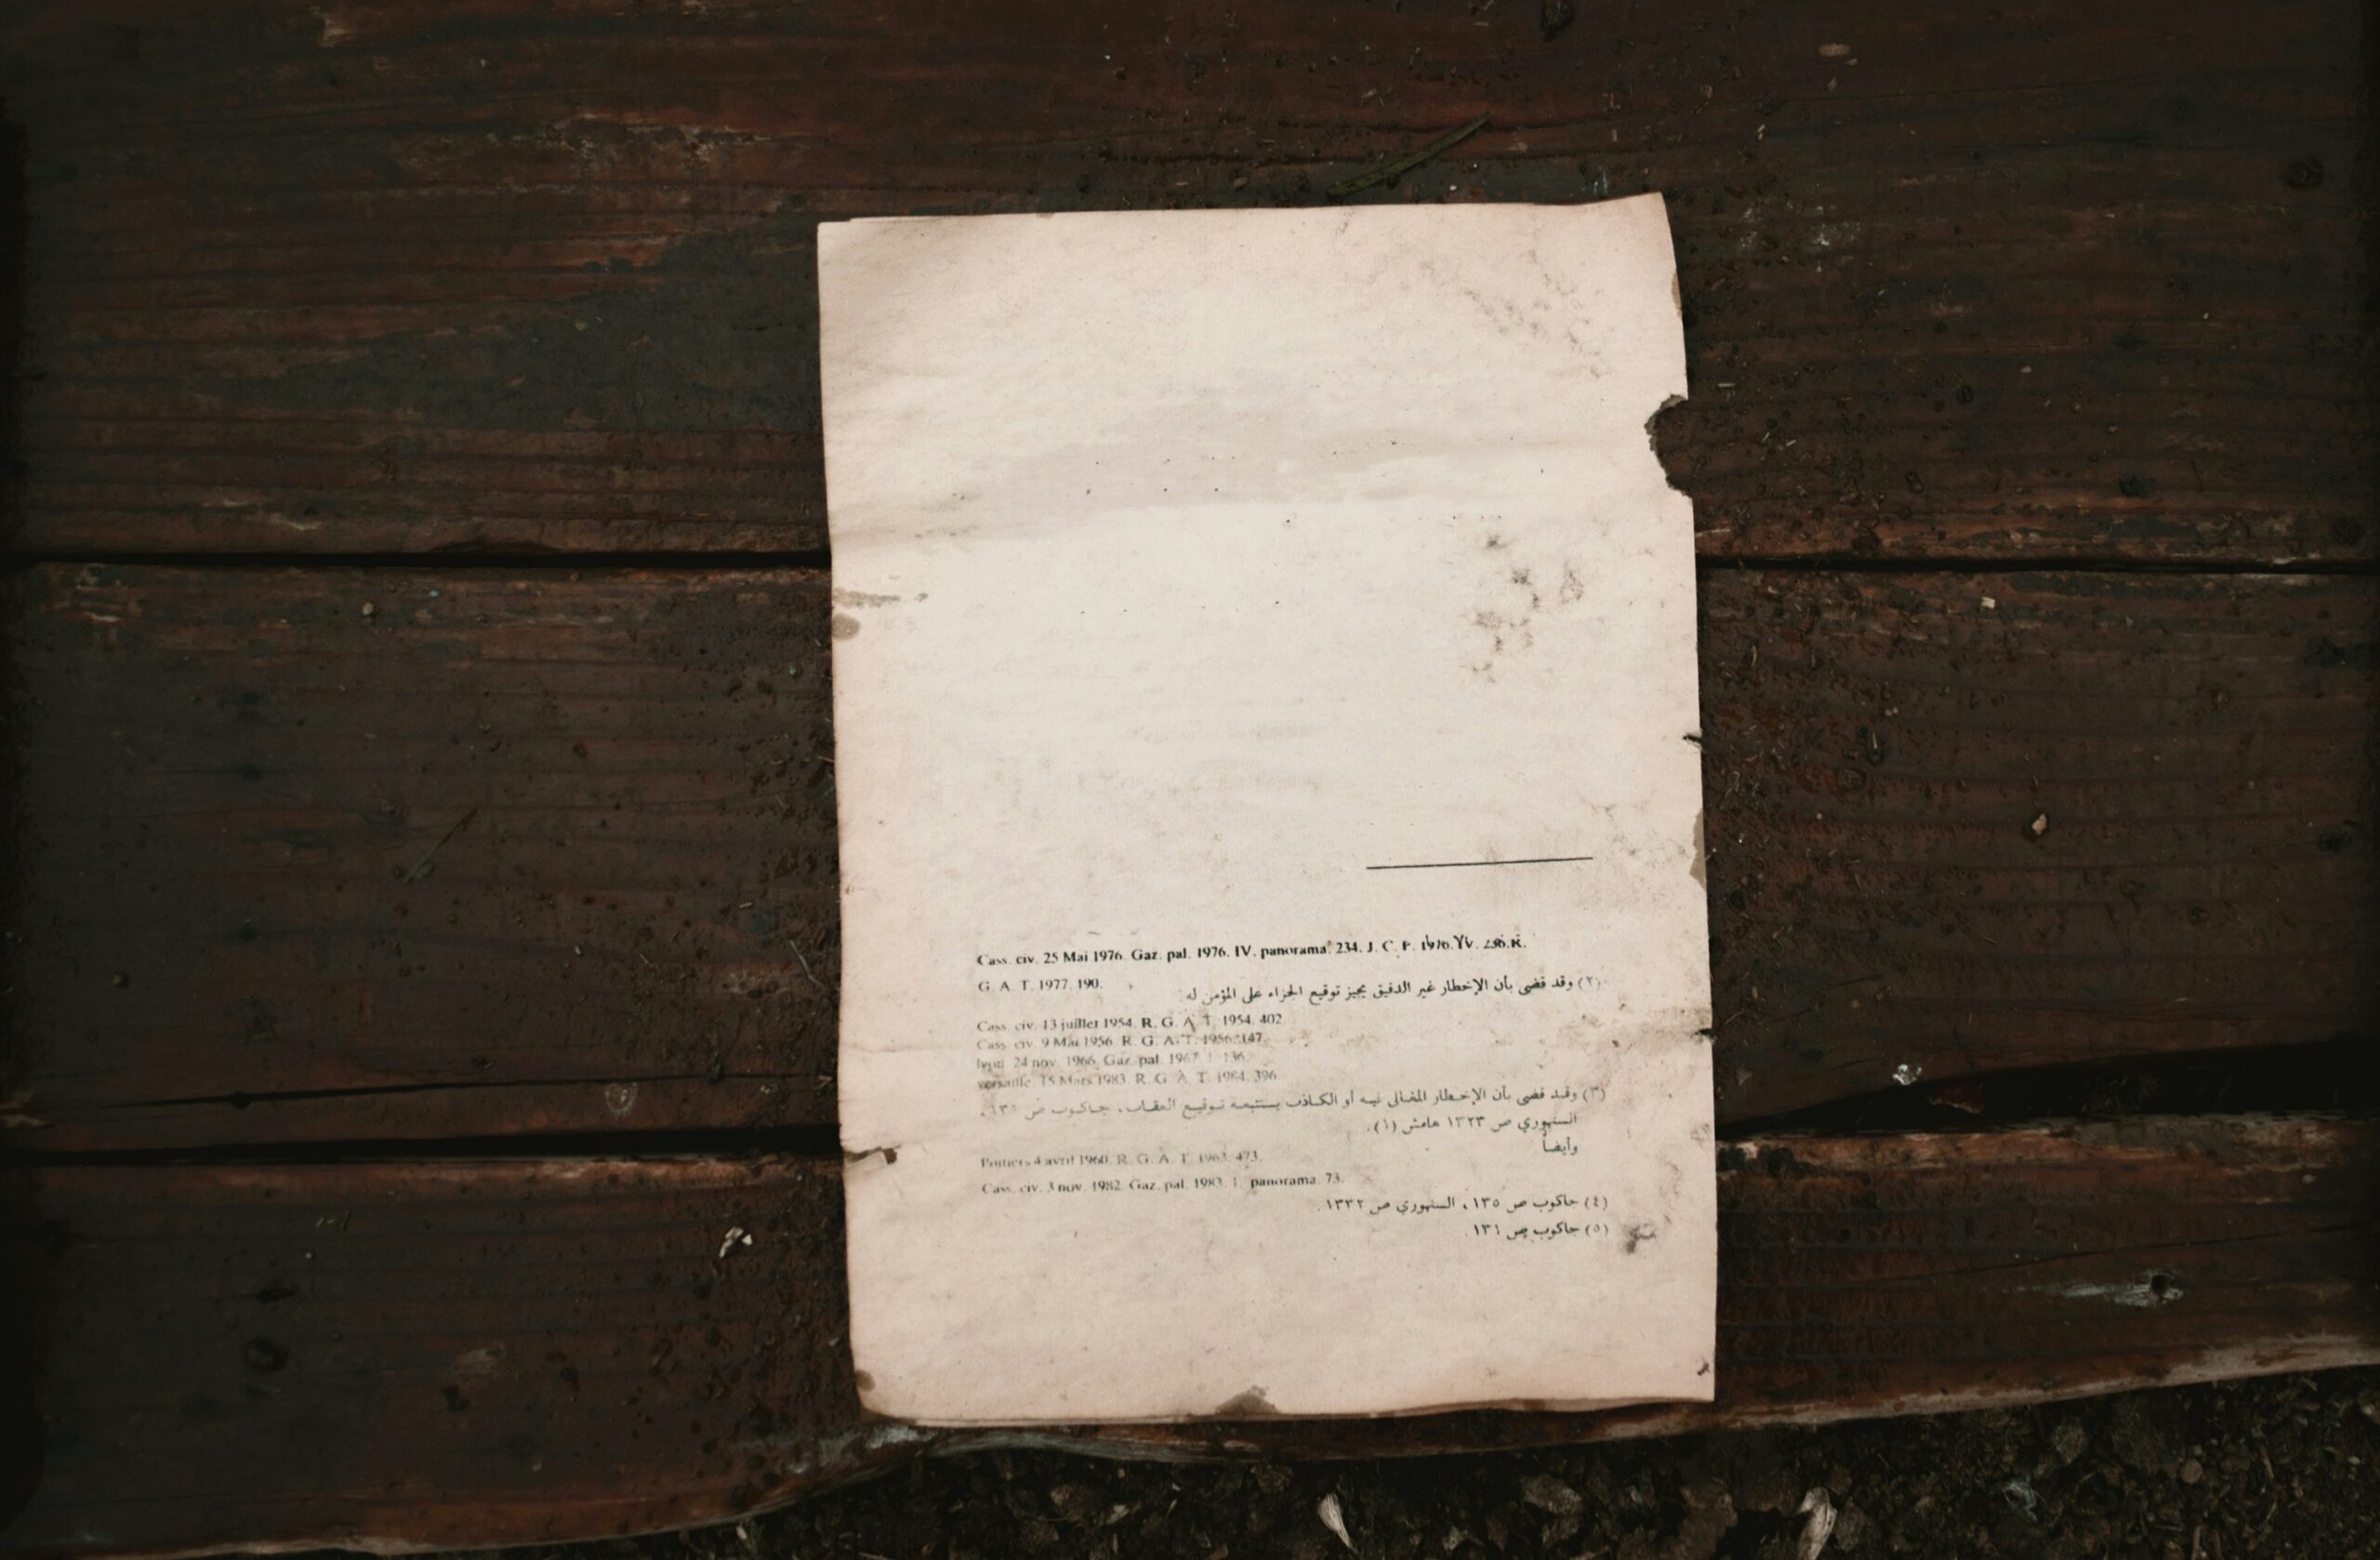 Cass. civ. 25 Mai 1976. Gaz. pal. 1976. IV. panorama. 234. J. C. P. 1976. IV. 236. R.
G. A. T. 1977. 190.
(٢) وقد قضى بأن الإخطار غير الدقيق يجيز توقيع الجزاء على المؤمن له
Cass. civ. 13 juillet 1954. R. G. A. T. 1954. 402
Cass. civ. 9 Mai 1956. R. G. A. T. 1956. 147.
lyon 24 nov. 1966. Gaz. pal. 1967. 1. 136.
versaille. 15 Mars 1983. R. G. A. T. 1984. 396.
(٣) وقد قضى بأن الإخطار المغالى فيه أو الكاذب يستتبعه توقيع العقاب، جاكوب ص ١٣١،
السنهوري ص ١٣٢٣ هامش (١).
وأيضاً
Poitiers 4 avril 1960. R. G. A. T. 1963. 473.
Cass. civ. 3 nov. 1982. Gaz. pal. 1983. 1. panorama. 73.
(٤) جاكوب ص ١٣٥، السنهوري ص ١٣٣٢.
(٥) جاكوب ص ١٣١.